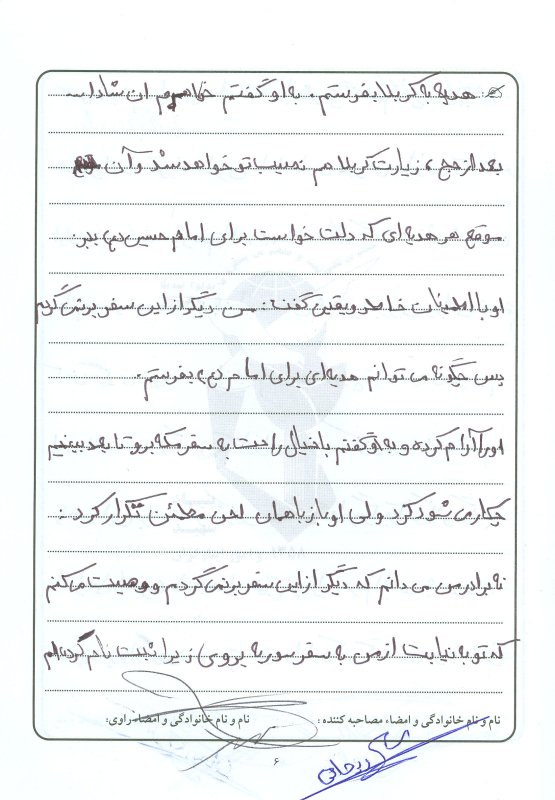 هدیه به کربلا بفرستم. به او گفتم ان شاءالله
بعد از حج، زیارت کربلا هم نصیب تو خواهد شد و آن
موقع هر هدیه ای که دلت خواست برای امام حسین (ع) ببر.
او با اطمینان خاطر و یقین گفت: من دیگر از این سفر برنمی گردم
پس چگونه می توانم هدیه ای برای امام (ع) بفرستم.
او را آرام کرده و به او گفتم با خیال راحت به سفر مکه برو تا بعد ببینیم
چکار می شود کرد ولی او باز با همان لحن مطمئن تکرار کرد:
نه برادر من می دانم که دیگر از این سفر برنمی گردم و وصیت می کنم
که تو به نیابت از من به سفر سوریه بروی زیرا ثبت نام کرده ام
نام و نام خانوادگی و امضاء مصاحبه کننده: نام و نام خانوادگی و امضاء راوی:
۶